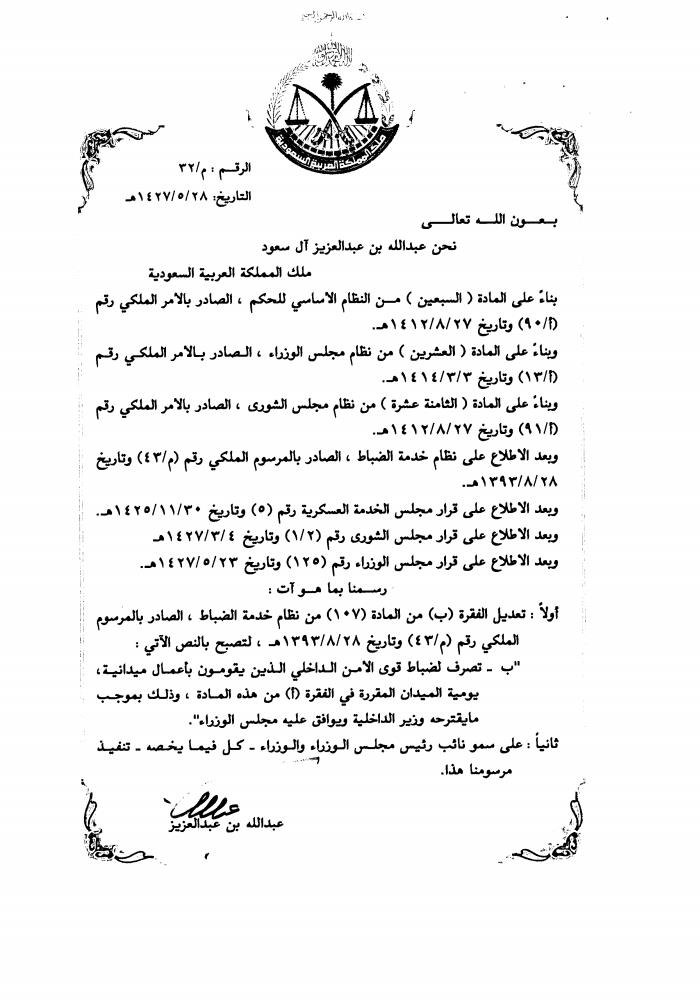 ملك المملكة العربية السعودية
الرقم : م/٣٢
التاريخ: ١٤٢٧/٥/٢٨هـ
بـعـــون اللـــه تعالـــى
نحن عبدالله بن عبدالعزيز آل سعود
ملك المملكة العربية السعودية
بناءً على المادة ( السبعين ) مـن النظام الأساسي للحكم ، الصادر بالأمر الملكي رقم
(أ/٩٠) وتاريخ ١٤١٢/٨/٢٧هـ.
وبناءً على المادة ( العشرين ) من نظام مجلس الوزراء ، الـصادر بـالأمر الملكـي رقـم
(أ/١٣) وتاريخ ١٤١٤/٣/٣هـ.
وبناءً على المادة ( الثامنة عشرة ) من نظام مجلس الشورى ، الصادر بالأمر الملكي رقم
(أ/٩١) وتاريخ ١٤١٢/٨/٢٧هـ.
وبعد الاطلاع على نظام خدمة الضباط ، الصادر بالمرسوم الملكي رقم (م/٤٣) وتاريخ
١٣٩٣/٨/٢٨هـ.
وبعد الاطلاع على قرار مجلس الخدمة العسكرية رقم (٥) وتاريخ ١٤٢٥/١١/٣٠هـ.
وبعد الاطلاع على قرار مجلس الشورى رقم (١/٢) وتاريخ ١٤٢٧/٣/٤هـ
وبعد الاطلاع على قرار مجلس الوزراء رقم (١٢٥) وتاريخ ١٤٢٧/٥/٢٣هـ.
رسـمنا بما هـو آت :
أولاً : تعديل الفقرة (ب) من المادة (١٠٧) من نظام خدمة الضباط ، الصادر بالمرسوم
الملكي رقم (م/٤٣) وتاريخ ١٣٩٣/٨/٢٨هـ ، لتصبح بالنص الآتي :
"ب ـ تصرف لضباط قوى الأمـن الـداخلي الـذين يقومـون بأعمـال ميدانيـة،
يومية الميدان المقررة في الفقرة (أ) من هذه المادة ، وذلك بموجب
مايقترحه وزير الداخلية ويوافق عليه مجلس الوزراء".
ثانياً : على سمو نائب رئيس مجلس الـوزراء والـوزراء ـ كـل فيمـا يخصه ـ تنفيـذ
مرسومنا هذا.
عبدالله بن عبدالعزيز